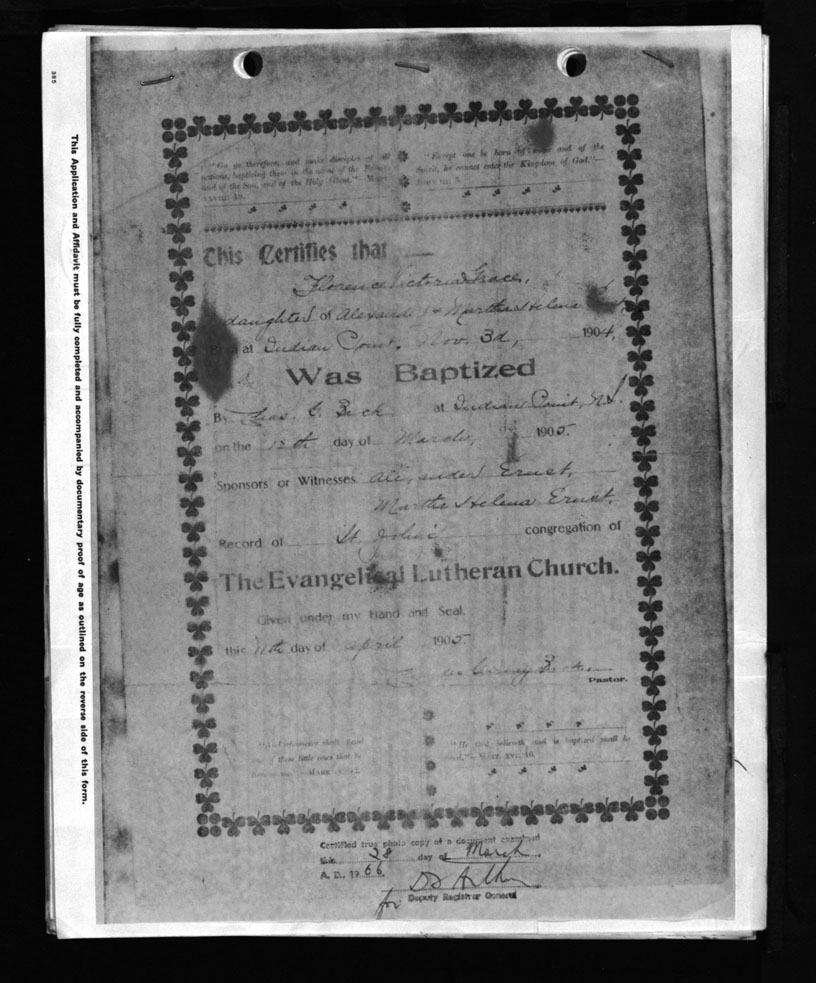 385
This Application and Affidavit must be fully completed and accompanied by documentary proof of age as outlined on the reverse side of this form.
"Go ye therefore, and make disciples of all
nations, baptizing them in the name of the Father,
and of the Son, and of the Holy Ghost."—MATT.
XXVIII: 19.
"Except one be born of water and of the
Spirit, he cannot enter the Kingdom of God."—
This Certifies that
Florence Victoria Grace,
daughter of Alexander & Martha Helena
at Indian Point, Nov. 3d, 1904,
Was Baptized
By Chas. G. Beck at Indian Point, N.S.
on the 12th day of March, 1905.
Sponsors or Witnesses Alexander Ernst,
Martha Helena Ernst.
Record of St John's congregation of
The Evangelical Lutheran Church.
Given under my Hand and Seal,
this day of April 1905.
Pastor.
these little ones that
MARK
"He that believeth and is baptized shall be
MARK XVI: 16.
Certified true photo copy of a document examined
this 28 day of March
A. D., 1966
for Deputy Registrar General